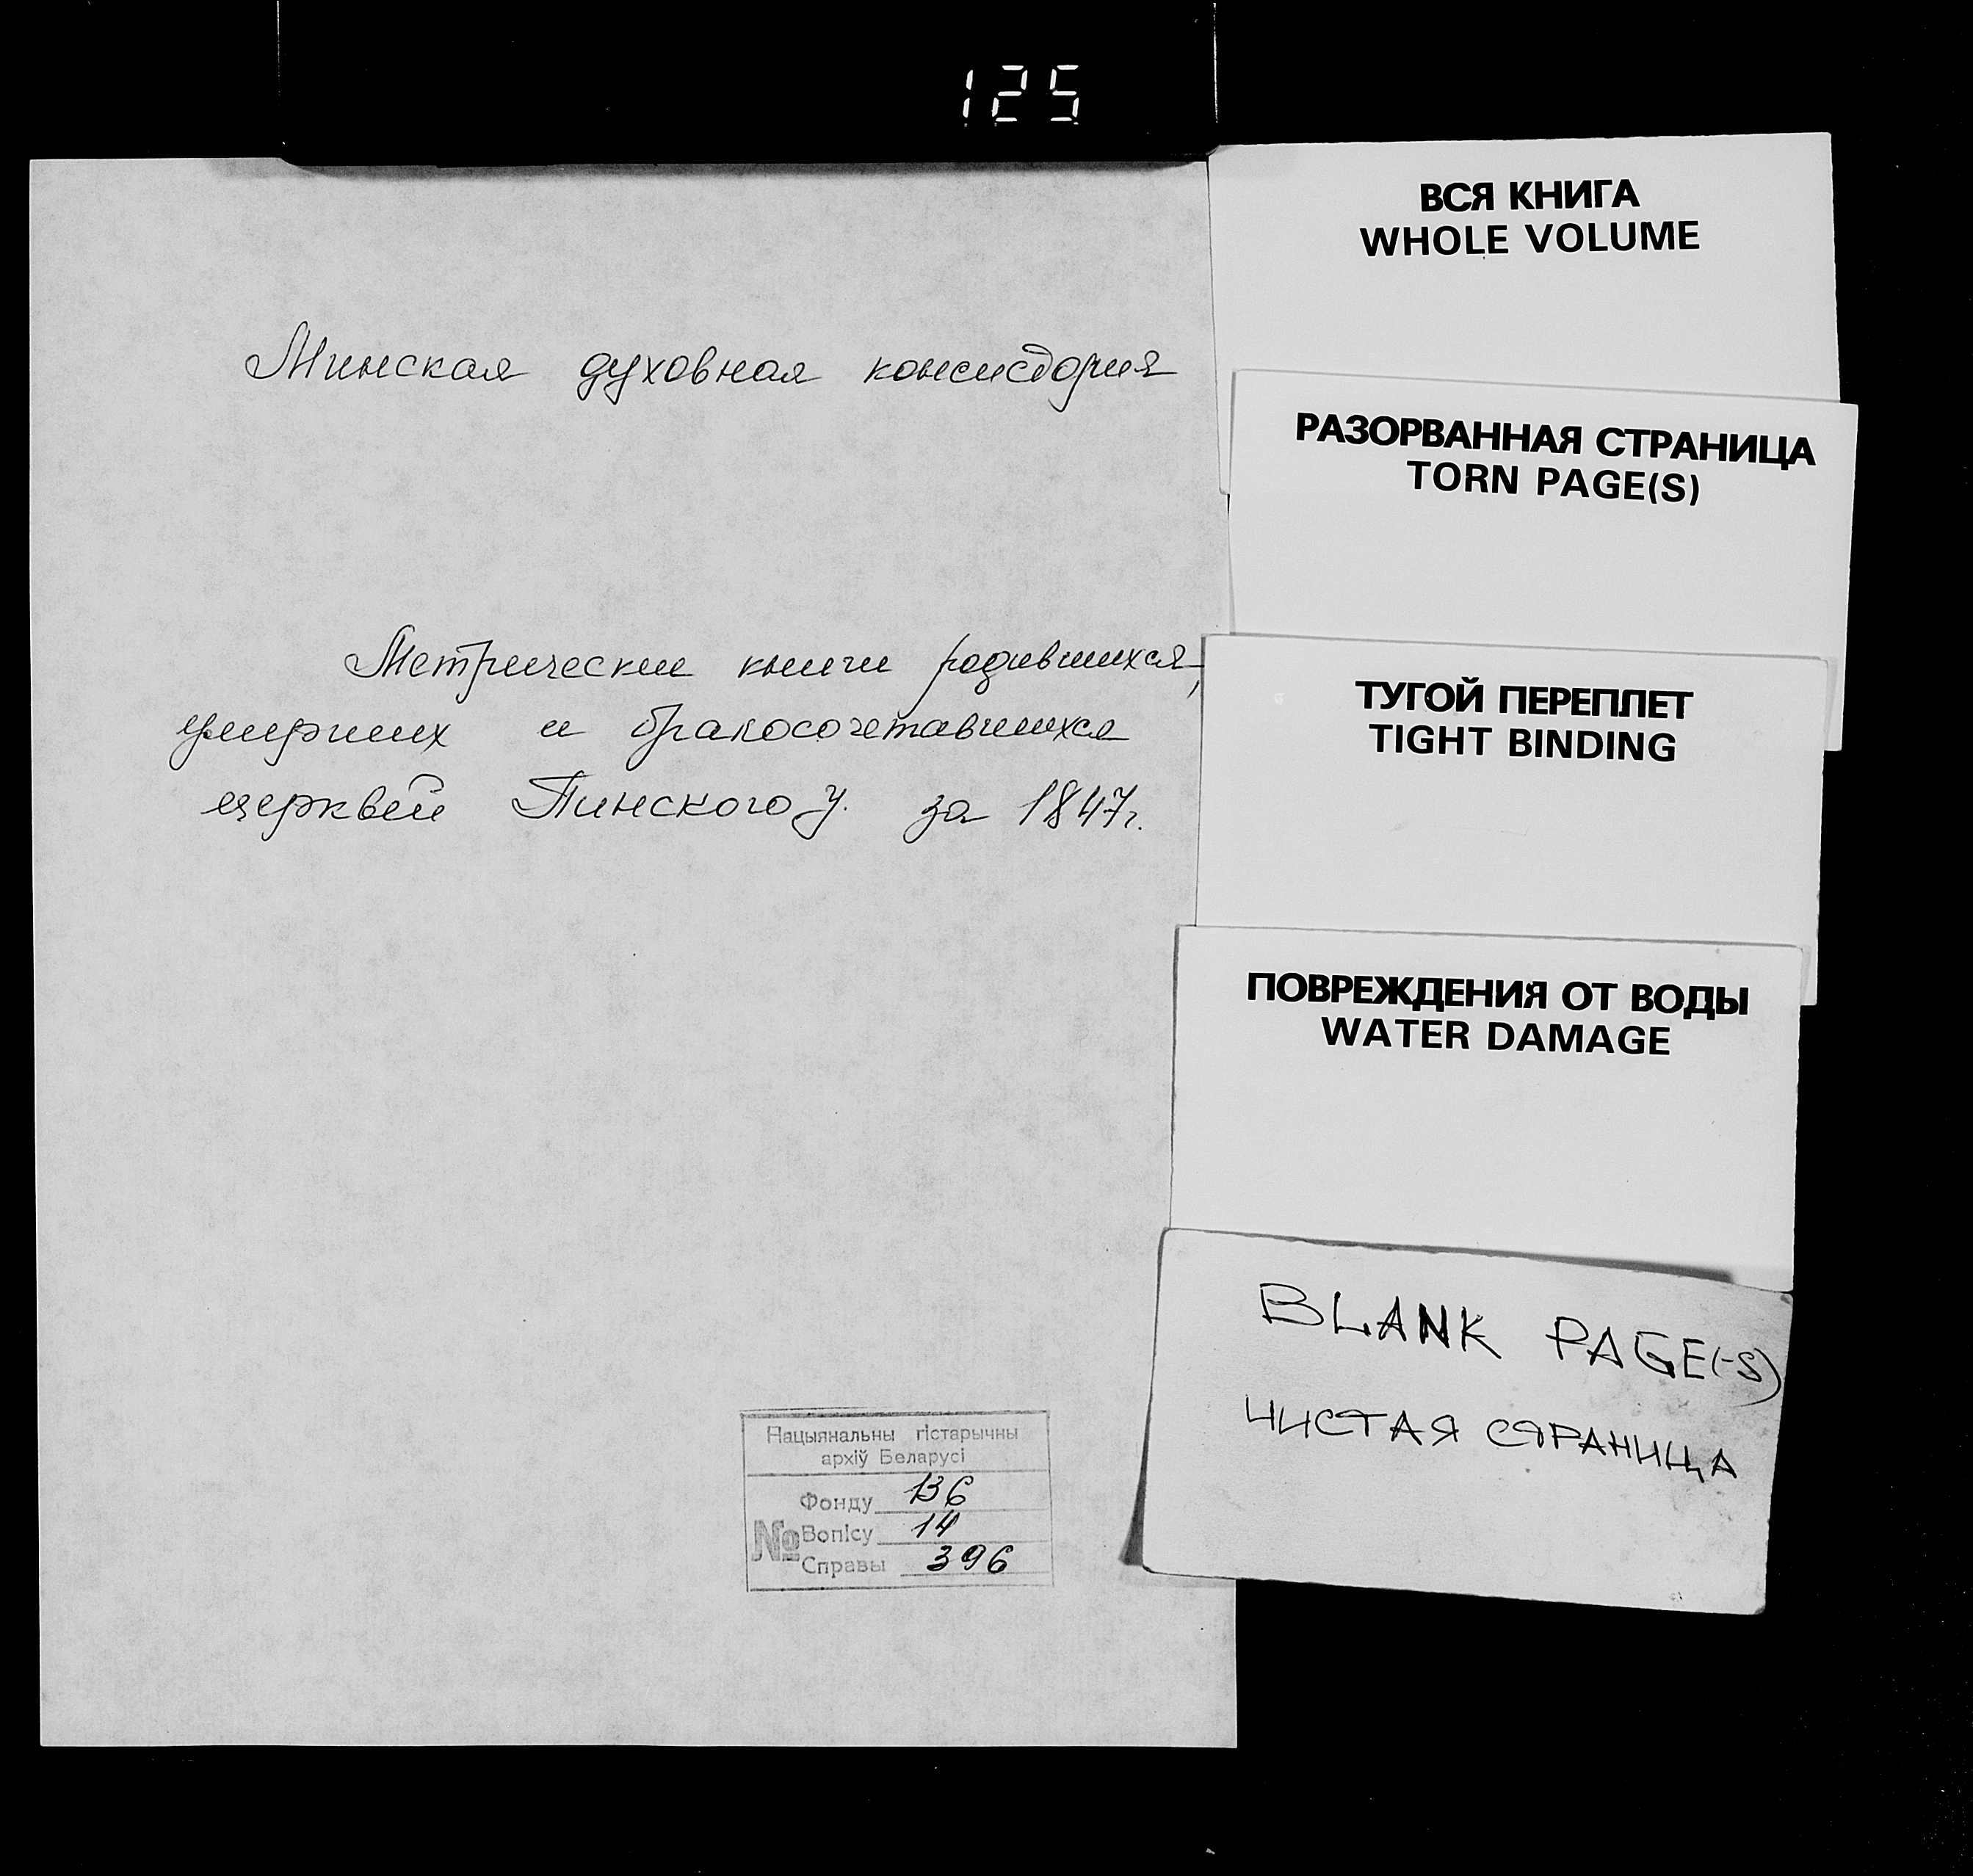 125
Минская духовная консистория
Метрические книги родившихся,
умерших и бракосочетавшихся
церквей Пинского у. за 1847г.
Нацыянальны гістарычны
архіў Беларусі
Фонду 136
№ Вопісу 14
Справы 396
ВСЯ КНИГА
WHOLE VOLUME
РАЗОРВАННАЯ СТРАНИЦА
TORN PAGE(S)
ТУГОЙ ПЕРЕПЛЕТ
TIGHT BINDING
ПОВРЕЖДЕНИЯ ОТ ВОДЫ
WATER DAMAGE
BLANK PAGE(-S)
ЧИСТАЯ СТРАНИЦА